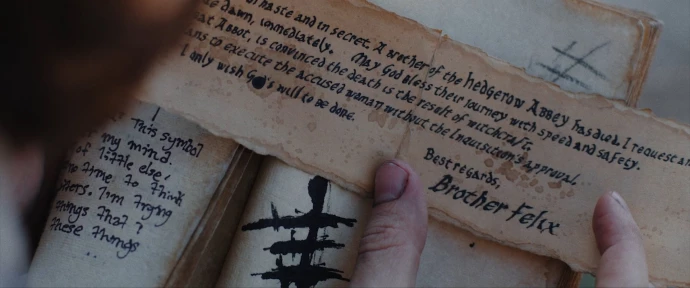 n haste and in secret. A brother of the Hedgerow Abbey has died. I request a
e dawn, immediately. May God bless their journey with speed and safety.
at Abbot, is convinced the death is the result of witchcraft,
ans to execute the accused woman without the Inquisition's approval...
I only wish G d's will to be done.
Best regards,
Brother Felix
This symbol
my mind.
of little else,
no time to think
I'm trying
things that ?
these things
...